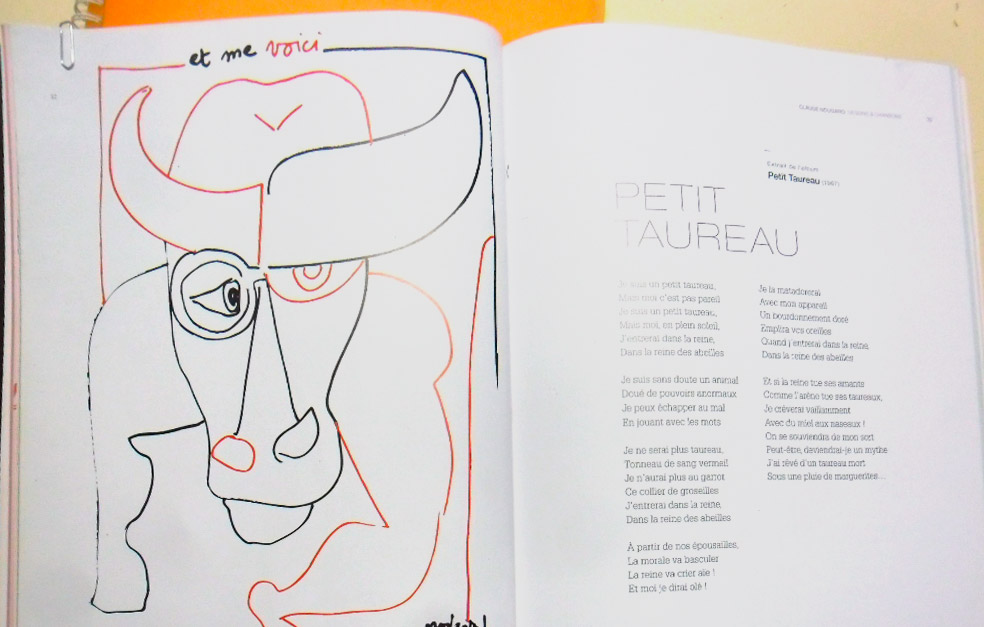 et me voici
CLAUDE NOUGARO
Extrait de l'album
Petit Taureau (1967)
PETIT
TAUREAU
Je suis un petit taureau,
Mais moi c'est pas pareil
Je suis un petit taureau,
Mais moi, en plein soleil,
J'entrerai dans la reine,
Dans la reine des abeilles
Je suis sans doute un animal
Doué de pouvoirs anormaux
Je peux échapper au mal
En jouant avec les mots
Je ne serai plus taureau,
Tonneau de sang vermeil
Je n'aurai plus au garrot
Ce collier de groseilles
J'entrerai dans la reine,
Dans la reine des abeilles
À partir de nos épousailles,
La morale va basculer
La reine va crier aïe !
Et moi je dirai olé !
Je la matadorerai
Avec mon appareil
Un bourdonnement doré
Emplira vos oreilles
Quand j'entrerai dans la reine,
Dans la reine des abeilles
Et si la reine tue ses amants
Comme l'arène tue ses taureaux,
Je crèverai vaillamment
Avec du miel aux naseaux !
On se souviendra de mon sort
Peut-être, deviendrai-je un mythe
J'ai rêvé d'un taureau mort
Sous une pluie de marguerites...